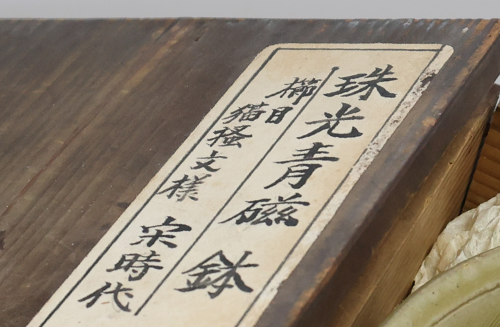 珠光青磁 鉢
櫛目
猫掻文様 宋時代